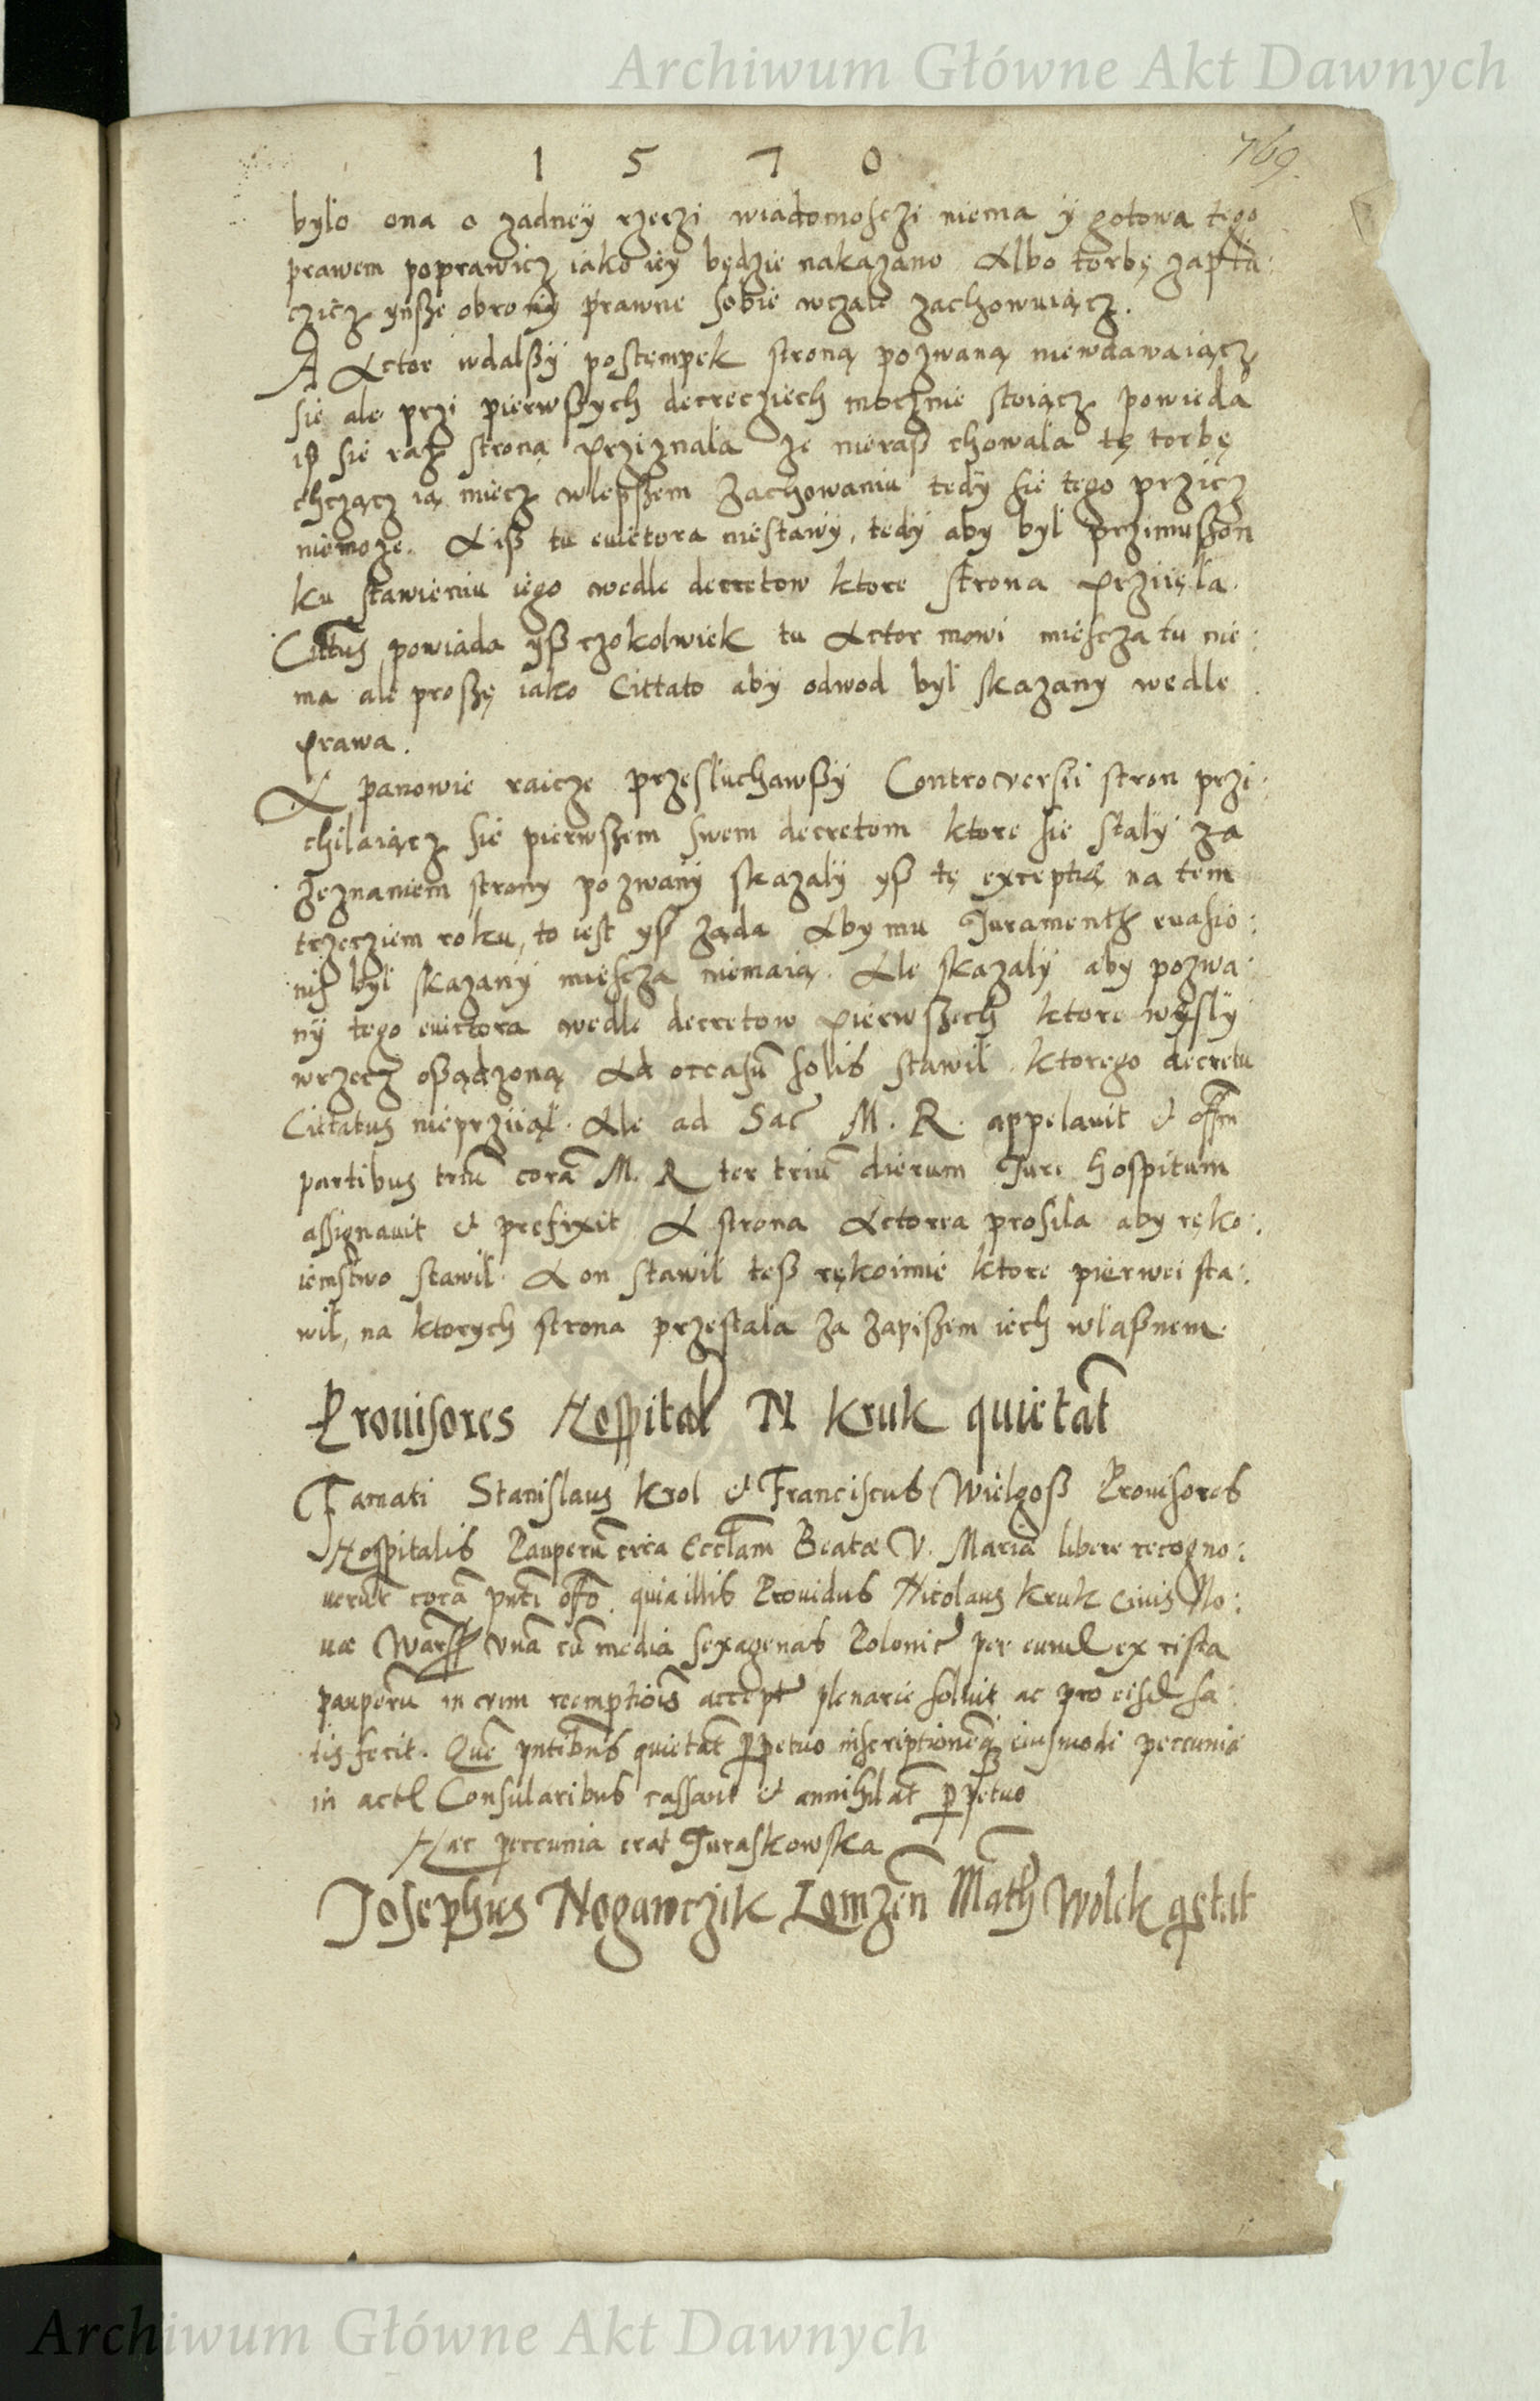 Archiwum Główne Akt Dawnych
1 5 7 0
769.
bylo ona o zadneÿ rzeczi wiadomosczi niema ÿ gotowa tego
prawem poprawicz iako ieÿ będzie nakazano Albo torbę zapła:
czicz ÿnsze obronÿ prawne sobie wczale zachowuiącz.
A Actor wdalßÿ postempek stroną pozwaną niewdawaiącz
sie ale przi pierwßych decrecziech mocznie stoiącz powieda
iß sie raz strona przÿznala ze nieraß chowala tę torbę
chcącz ią miecz wlepszem zachowaniu tedÿ sie tego przicz
niemoze. A iß tu euictora niestawÿ, tedÿ aby byl przimuszon
ku stawieniu iego wedle decretow ktore strona prziięla.
Cittus powiada ÿß czokolwiek tu Actor mowi miescza tu nie:
ma ale proszę iako Cittato abÿ odwod byl skazany wedle
prawa.
A panowie raicze przesluchawßÿ Controversii stron przi:
chilaiącz sie pierwszem swem decretom ktore sie stalÿ za
zeznaniem strony pozwanÿ skazalÿ ÿß tę exceptią na tem
trzecziem roku, to iest ÿß ząda Aby mu Juramentū euasio:
nis byl skazanÿ miescza niemaią. Ale skazalÿ aby pozwa:
nÿ tego euictora wedle decretow pierwszech ktore wÿslÿ
wrzecz osądzoną Ad occasū solis stawil. ktorego decretu
Cittatus nieprziiąl. Ale ad Sac M. R. appelauit et offm
partibus trm corā M. R ter triū dierum Jure hospitum
assignauit et prefixit A strona Actorea prosila aby ręko:
iemstwo stawil. A on stawil teß rękoimie ktore pierwei sta:
wil, na ktorych strona przestala za zapiszem iech wlaßnem.
Prouisores Hospital N Kruk quietāt
Famati Stanislaus Krol et Franciscus Wielgoß Prouisores
Hospitalis Pauperū circa Eccłam Beatæ V. Mariæ libere recogno:
uerūt corā pnti offo. quia illis Prouidus Nicolaus Kruk Ciuis No:
uæ Warss vnā cū media sexagenas Polonic per eund ex cista
pauperū in crim reemptiois accept plenarie soluit ac pro eisd sa:
tis fecit. Quē pntibus quietāt ppetuo inscriptionēq eiusmodi peccuniæ
in act Consularibus cassant et annihilāt ppetuo
Hæc peccunia erat Juraskowska
Josephus Nogawczik Lomzēn Math Wolek qetat
Archiwum Główne Akt Dawnych